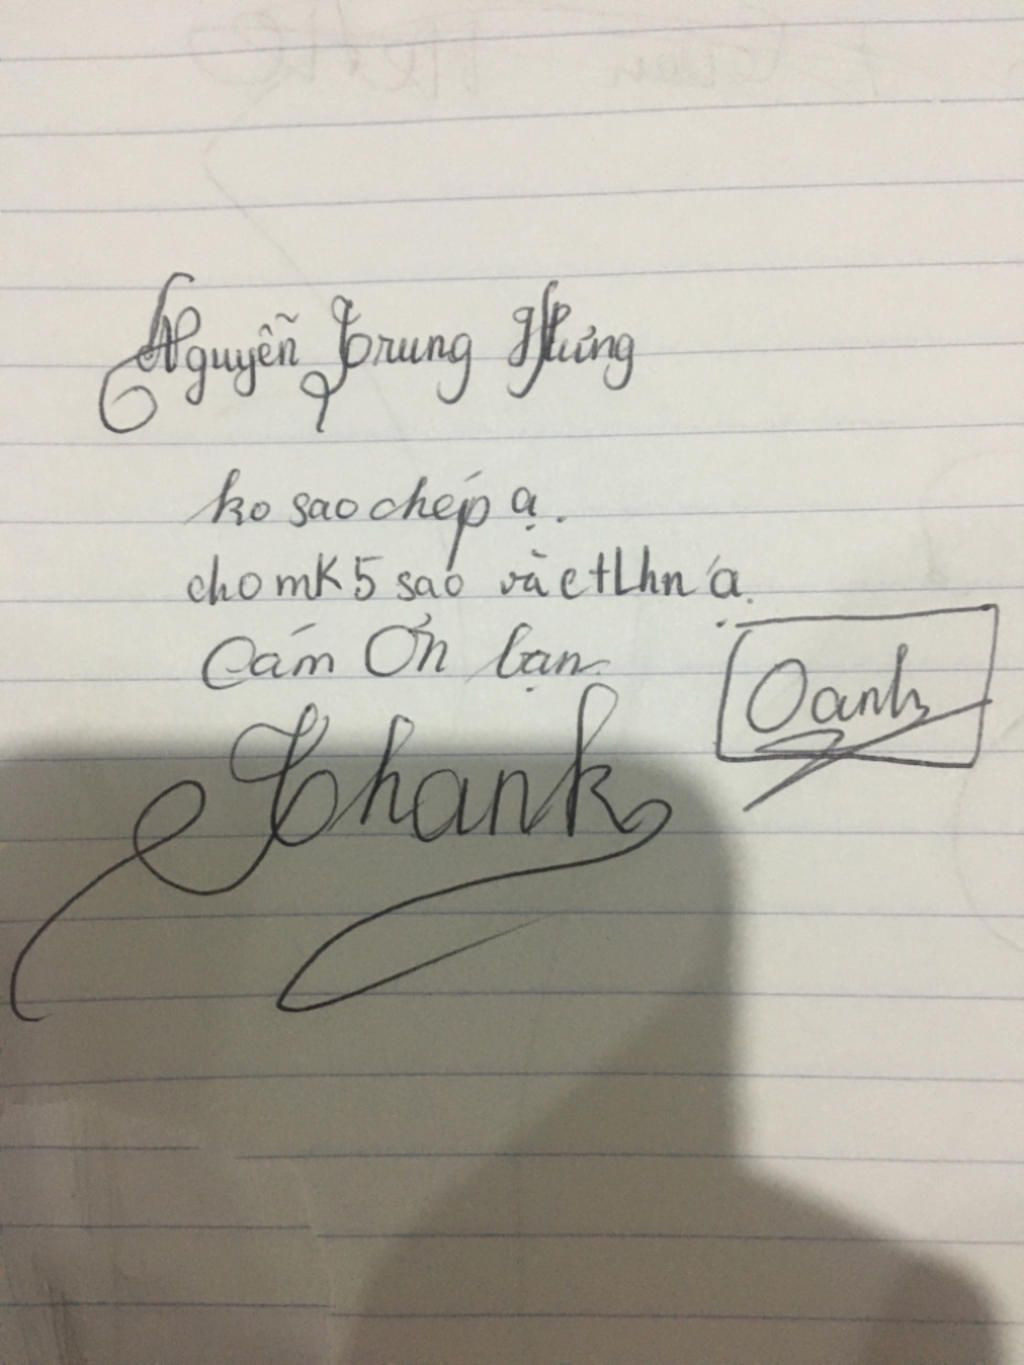 Nguyễn Trung Hưng
ko sao chép ạ.
cho mk 5 sao và ctlhn ạ.
Cám Ơn bạn
Oanh
Thank